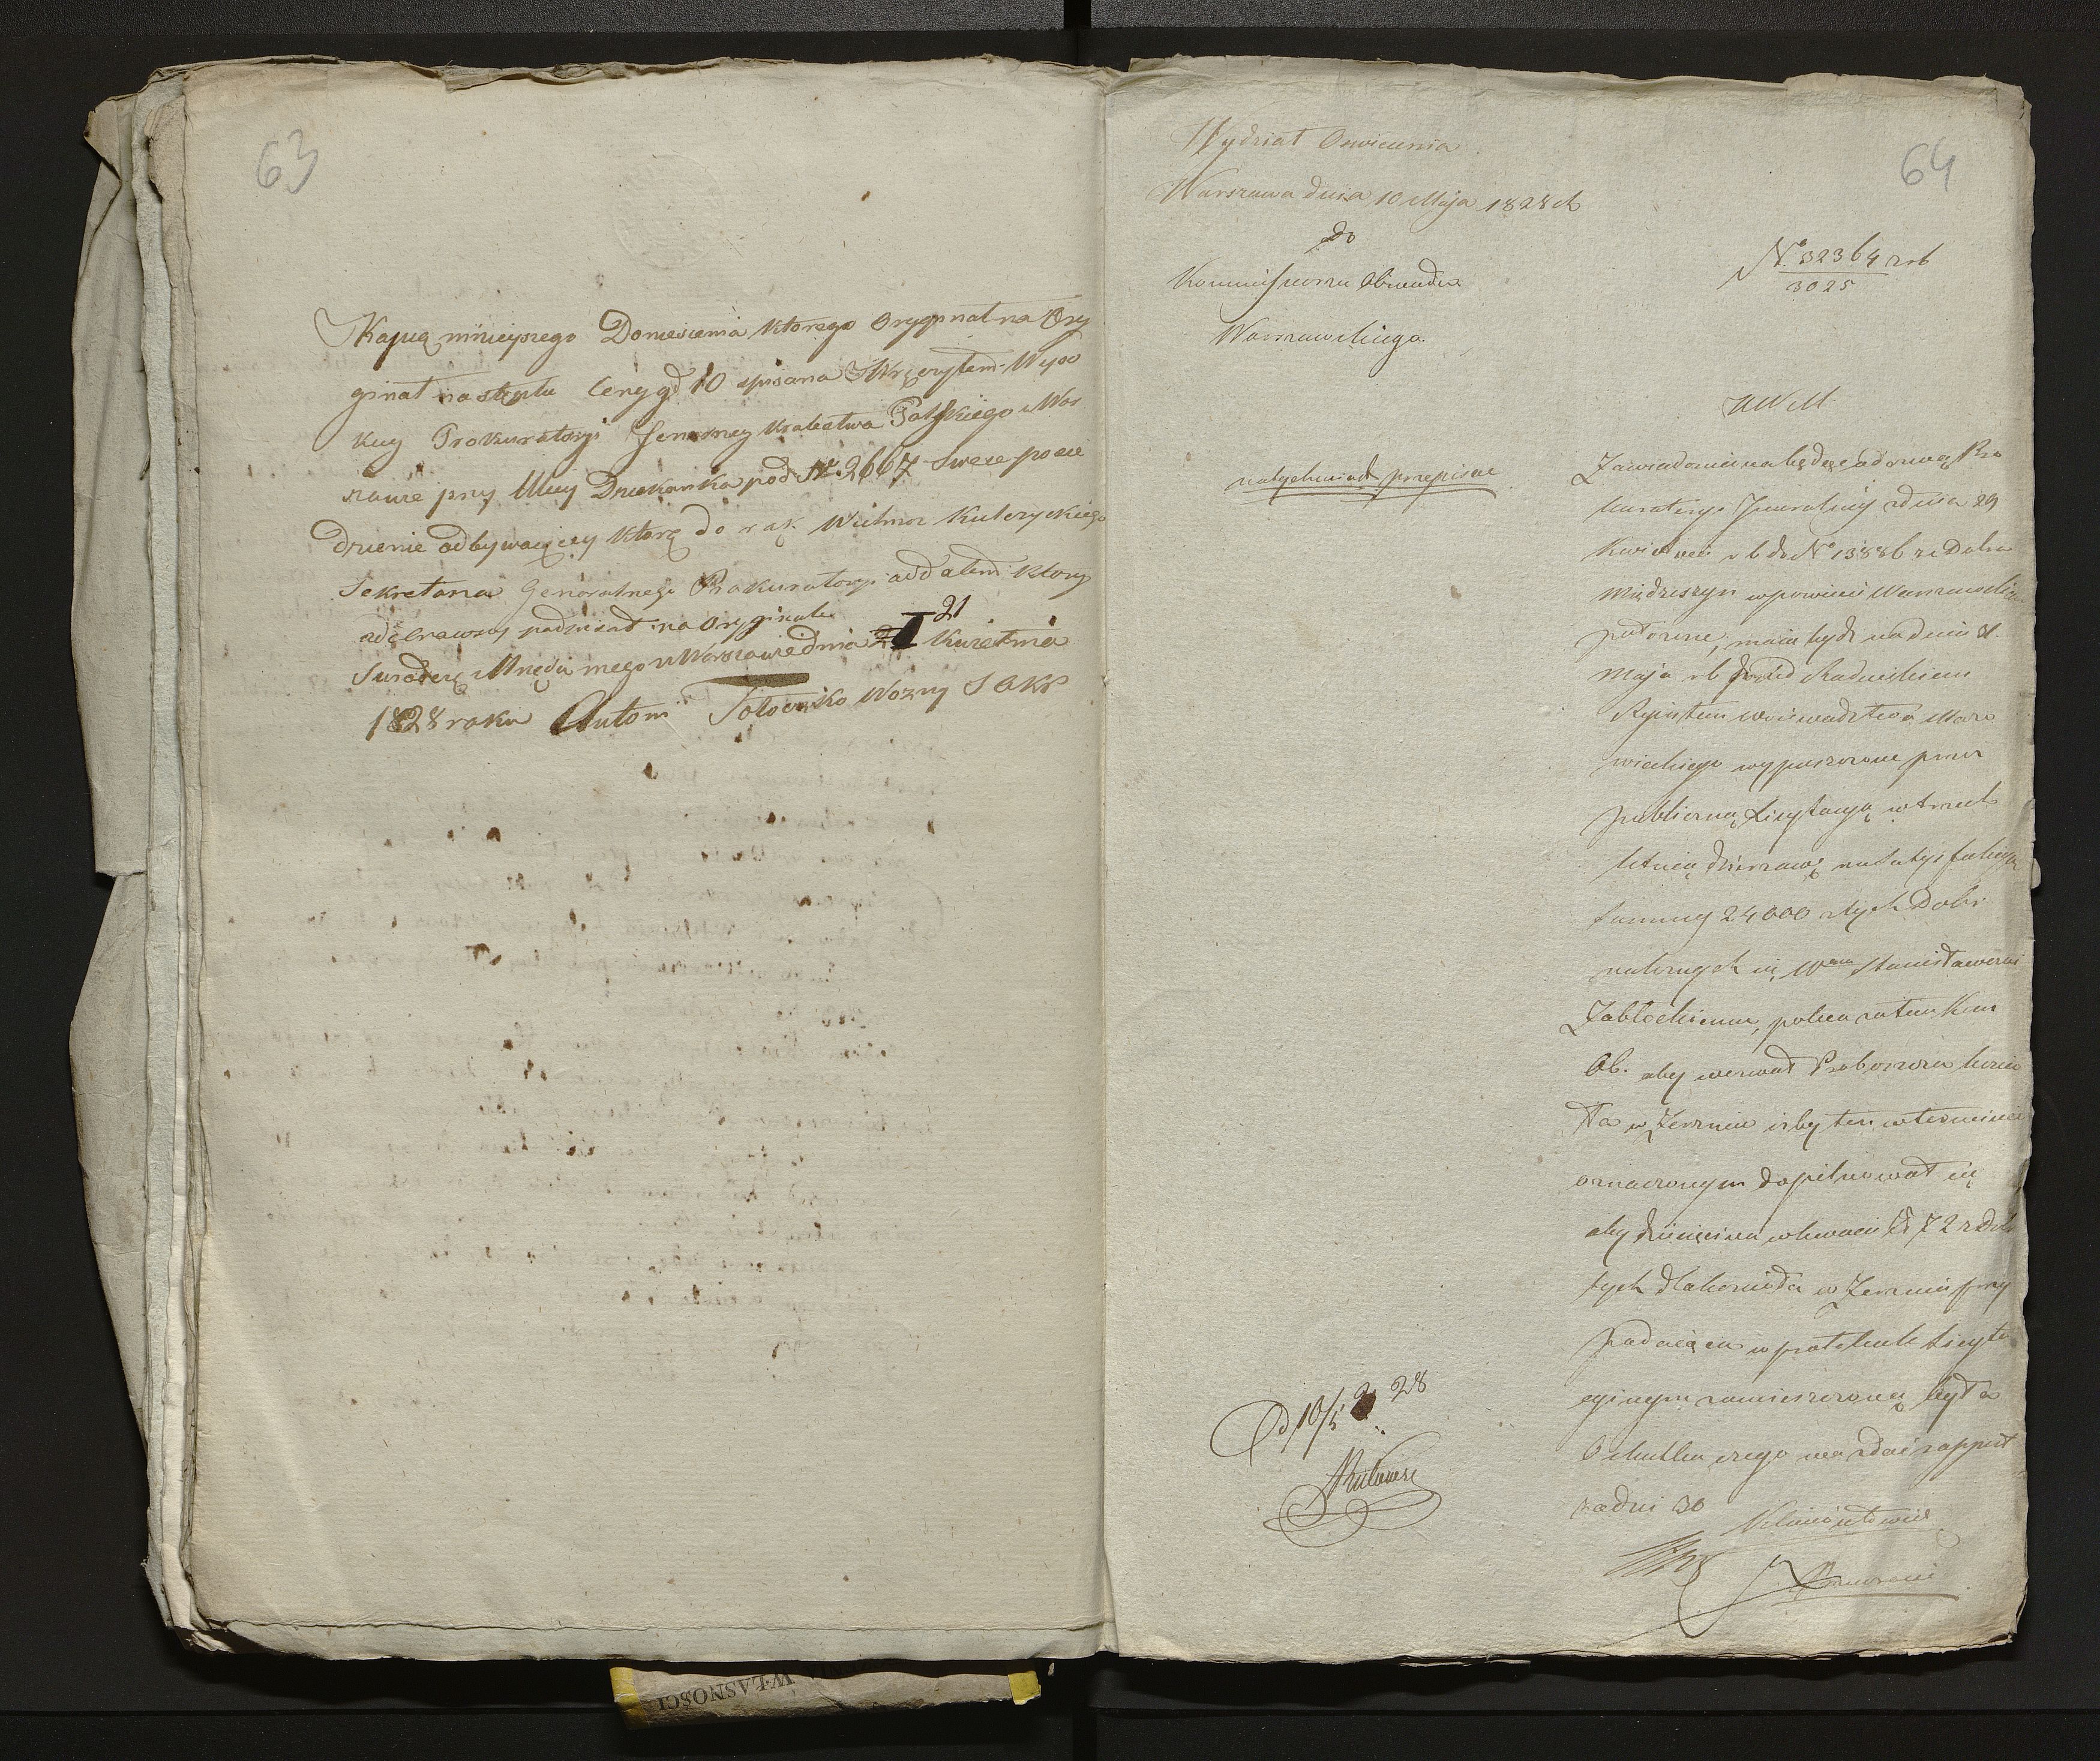 63
Kopią ninieyszego Doniesienia ktorego Oryginał na Ory
ginał na stęplu ceny gr 10 spisana Wręczyłem Wyso
kiey Prokuratoryi Jeneralney Krolestwa Polskiego w War
szawie przy Ulicy Danikarska pod N 2667 swoie posie
dzenie odbywaiącey którą do rąk Wielmoz Kuleryckiego
Sekretarza Generalnego Prokuratoryi oddałem ktory
odebrawszy podpisał na Oryginale
Swiadczę Urzędu mego w Warszawie dnia 21 Kwietnia
1828 roku Antoni Woźny
64
Wydział Oswiecenia
Warszawa dnia 10 Maja 1828 r
do
Kommissarza Obwodu
Warszawskiego
No 32364 rb
3025
KWM
natychmiast przepisać
Zawiadomiona będąc odezwą Pro
kuratoryi Jeneralney z dnia 29
Kwietnia rb do No 13886 że Dobra
Miedzeszyn w powiecie Warszawskim
położone, maią bydź na dniu 31
Maja rb przed
Rejentem Województwa Mazo
wieckiego wypuszczone przez
publiczną Licytacyą w trzech
letnią dzierzawę na satysfakcyą
summy 24000 złych Dobr
należnych się Wmu Stanisławowi
Zabłockiemu, poleca zatem Kom
Ob. aby wezwał Proboszcza kościo
ła w Zerzniu iżby ten w terminie
oznaczonym dopilnował się
aby dziesięcina w kwocie zł 72 z Dóbr
tych dla kościoła w Zerzniu przy
padaiąca w protokule licyta
cyinym zamieszczoną była
O skutku czego ma zdać rapport
za dni 30
Od 10/5 28